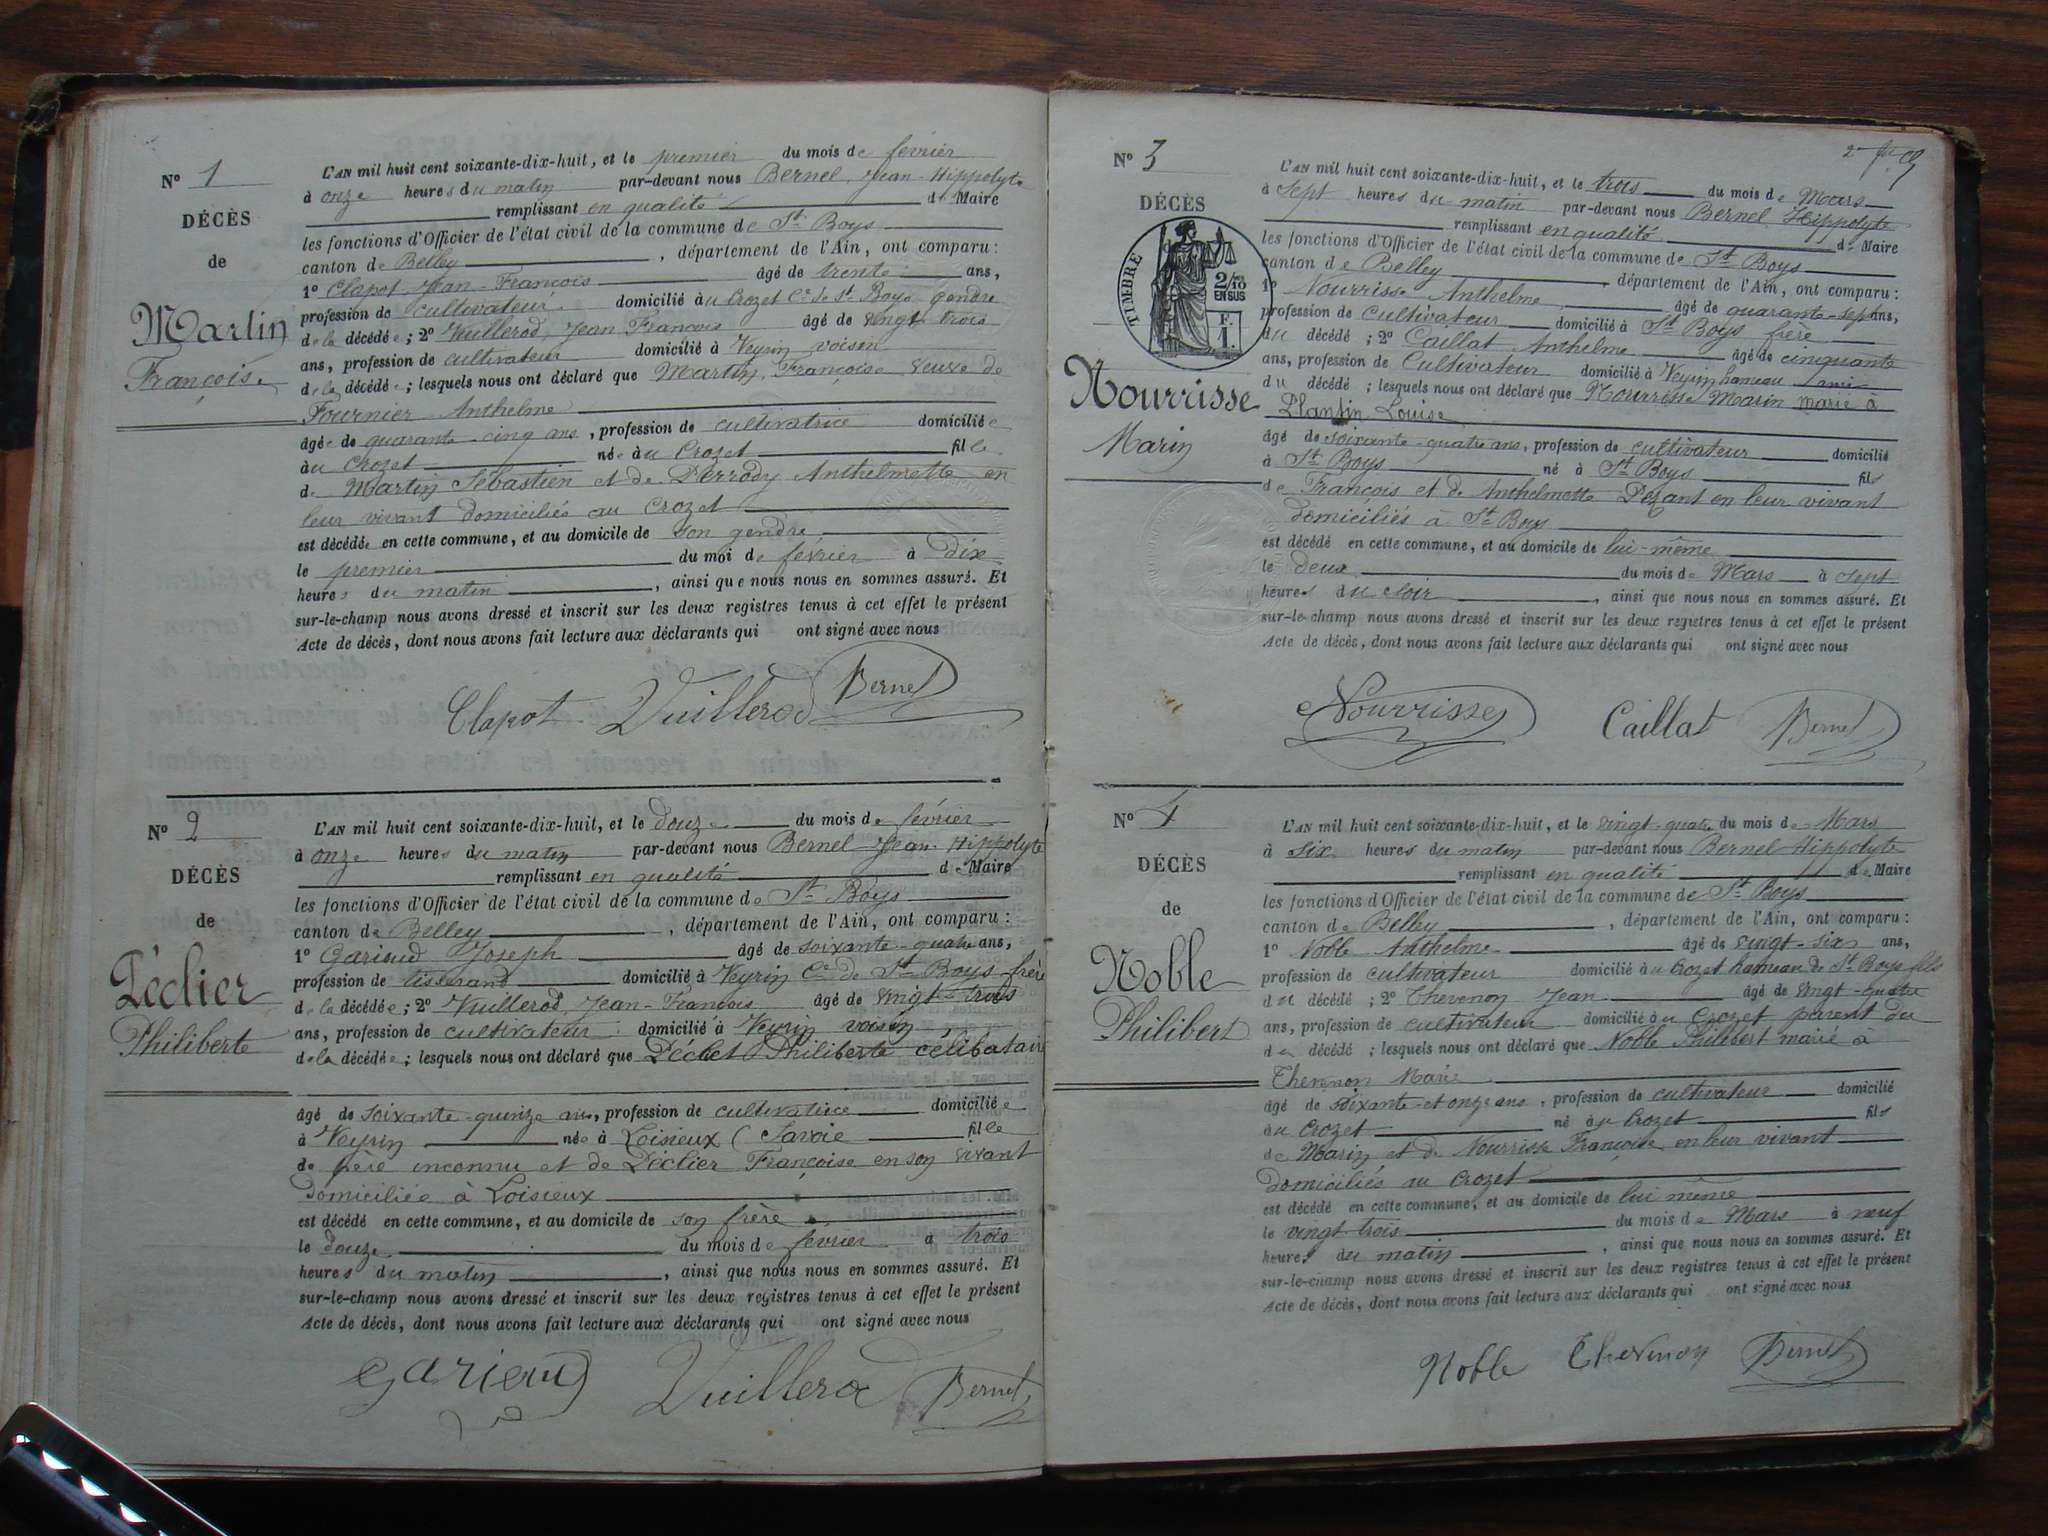 Nº 1
DÉCÈS
de
Martin
Françoise
L'AN mil huit cent soixante-dix-huit, et le premier du mois de février
à onze heures du matin par-devant nous Bernel Jean-Hippolyte
remplissant en qualité de Maire
les fonctions d'Officier de l'état civil de la commune de St Boys
canton de Belley, département de l'Ain, ont comparu :
1º Clapot Jean-François âgé de trente ans,
profession de cultivateur domicilié au Crozet Cne de St Boys gendre
de la décédée ; 2º Vuillerod, Jean François âgé de vingt-trois
ans, profession de cultivateur domicilié à Veyrin voisin
de la décédée ; lesquels nous ont déclaré que Martin, Françoise veuve de
Fournier Anthelme
âgée de quarante-cinq ans, profession de cultivatrice domiciliée
au Crozet née au Crozet fille
de Martin Sébastien et de Perrody Anthelmette en
leur vivant domiciliés au Crozet
est décédée en cette commune, et au domicile de son gendre
le premier du moi de février à dix
heures du matin, ainsi que nous nous en sommes assuré. Et
sur-le-champ nous avons dressé et inscrit sur les deux registres tenus à cet effet le présent
Acte de décès, dont nous avons fait lecture aux déclarants qui ont signé avec nous
Clapot Vuillerod Bernel
Nº 2
DÉCÈS
de
Péclier
Philiberte
L'AN mil huit cent soixante-dix-huit, et le douze du mois de février
à onze heures du matin par-devant nous Bernel Jean-Hippolyte
remplissant en qualité de Maire
les fonctions d'Officier de l'état civil de la commune de St Boys
canton de Belley, département de l'Ain, ont comparu :
1º Gariaud Joseph âgé de soixante-quatre ans,
profession de tisserand domicilié à Veyrin Cne de St Boys frère
de la décédée ; 2º Vuillerod, Jean-François âgé de vingt-trois
ans, profession de cultivateur domicilié à Veyrin voisin
de la décédée ; lesquels nous ont déclaré que Philiberte célibataire
âgé de soixante-quinze ans, profession de cultivatrice domiciliée
à Veyrin née à Loisieux (Savoie fille
de père inconnu et de Péclier Françoise en son vivant
domiciliée à Loisieux
est décédé en cette commune, et au domicile de son frère
le douze du mois de février à trois
heures du matin, ainsi que nous nous en sommes assuré. Et
sur-le-champ nous avons dressé et inscrit sur les deux registres tenus à cet effet le présent
Acte de décès, dont nous avons fait lecture aux déclarants qui ont signé avec nous
Gariaud Vuillerod Bernel
Nº 3
DÉCÈS
TIMBRE
2/10
EN SUS
F.
1.
Nourrisse
Marin
L'AN mil huit cent soixante-dix-huit, et le trois du mois de Mars
à sept heures du matin par-devant nous Bernel Hippolyte
remplissant en qualité de Maire
les fonctions d'Officier de l'état civil de la commune de St Boys
canton de Belley, département de l'Ain, ont comparu :
1º Nourrisse Anthelme âgé de quarante-sept ans,
profession de Cultivateur domicilié à St Boys frère
du décédé ; 2º Caillat Anthelme âgé de cinquante
ans, profession de Cultivateur domicilié à Veyrin hameau ami
du décédé ; lesquels nous ont déclaré que Nourrisse Marin marié à
Plantin Louise
âgé de soixante-quatre ans, profession de cultivateur domicilié
à St Boys né à St Boys fils
de François et de Anthelmette Pezant en leur vivant
domiciliés à St Boys
est décédé en cette commune, et au domicile de lui-même
le deux du mois de Mars à sept
heures du soir, ainsi que nous nous en sommes assuré. Et
sur-le-champ nous avons dressé et inscrit sur les deux registres tenus à cet effet le présent
Acte de décès, dont nous avons fait lecture aux déclarants qui ont signé avec nous
Nourrisse Caillat Bernel
Nº 4
DÉCÈS
de
Noble
Philibert
L'AN mil huit cent soixante-dix-huit, et le vingt-quatre du mois de Mars
à six heures du matin par-devant nous Bernel Hippolyte
remplissant en qualité de Maire
les fonctions d'Officier de l'état civil de la commune de St Boys
canton de Belley, département de l'Ain, ont comparu :
1º Noble Anthelme âgé de vingt-six ans,
profession de cultivateur domicilié au Crozet hameau de St Boys fils
du décédé ; 2º Thevenon Jean âgé de vingt-quatre
ans, profession de cultivateur domicilié au Crozet parent du
du décédé ; lesquels nous ont déclaré que Noble Philibert marié à
Thevenon Marie
âgé de soixante-et-onze ans, profession de cultivateur domicilié
au Crozet né au Crozet fils
de Marin et de Nourrisse Françoise en leur vivant
domiciliés au Crozet
est décédé en cette commune, et au domicile de lui même
le vingt-trois du mois de Mars à neuf
heures du matin, ainsi que nous nous en sommes assuré. Et
sur-le-champ nous avons dressé et inscrit sur les deux registres tenus à cet effet le présent
Acte de décès, dont nous avons fait lecture aux déclarants qui ont signé avec nous
Noble Thevenon Bernel